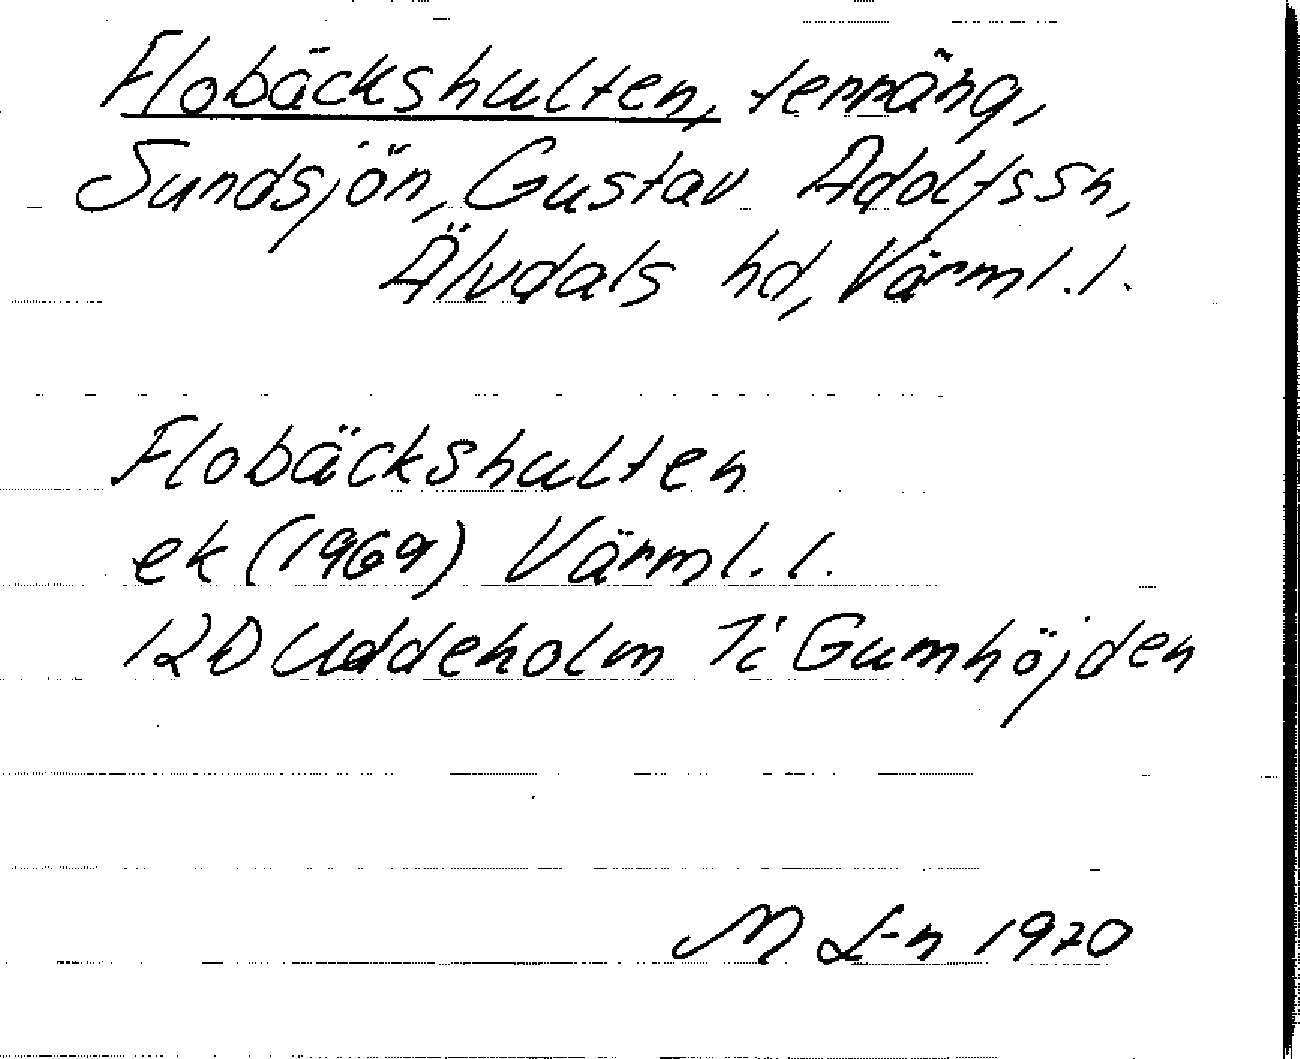 Flobäckshulten, terräng,
Sundsjön, Gustav Adolfssn,
Älvdals hd, Värml.l.
Flobäckshulten
ek (1969) Värml.l.
12D Uddeholm 7i Gumhöjden
M L-n 1970